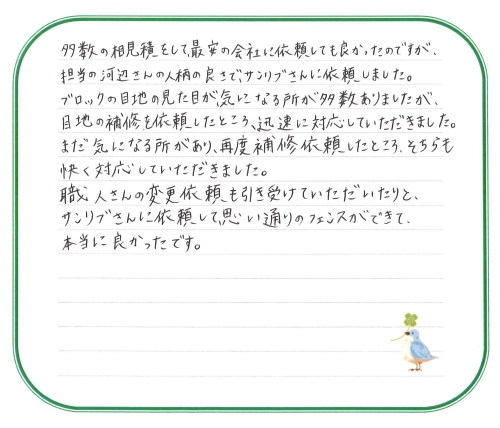 多数の相見積をして最安の会社に依頼しても良かったのですが、
担当の河辺さんの人柄の良さで、サンリブさんに依頼しました。
ブロックの目地の見た目が気になる所が多数ありましたが、
目地の補修を依頼したところ、迅速に対応していただきました。
まだ気になる所があり、再度補修依頼したところ、そちらも
快く対応していただきました。
職人さんの変更依頼も引き受けていただいたりと、
サンリブさんに依頼して思い通りのフェンスができて、
本当に良かったです。